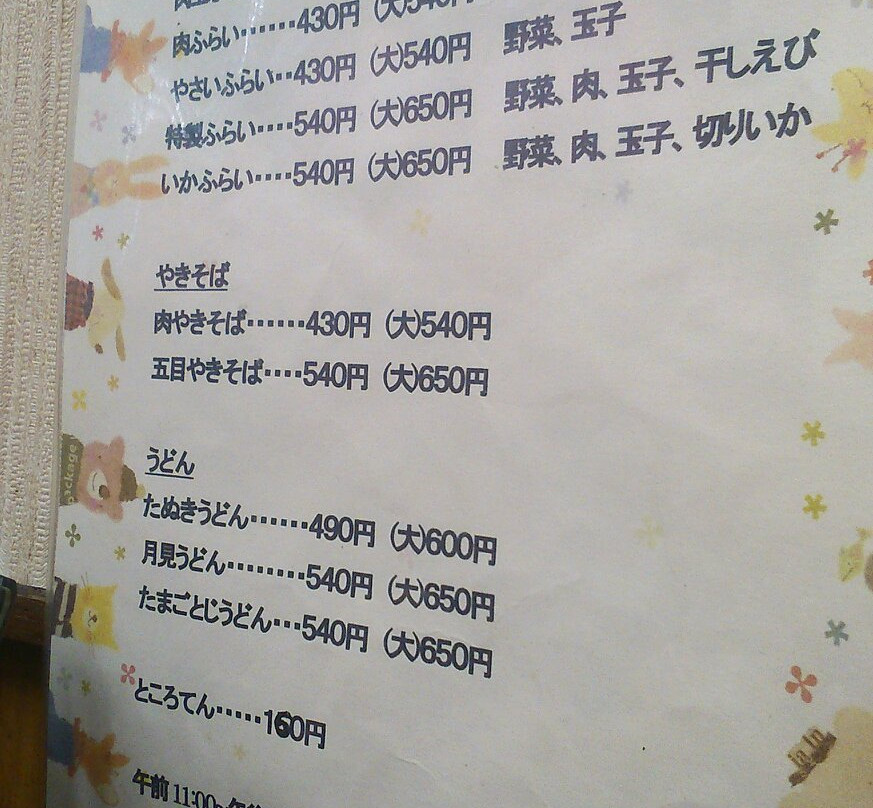 肉ふらい……430円 (大)540円 野菜、玉子
やさいふらい‥430円 (大)540円 野菜、肉、玉子、干しえび
特製ふらい‥‥540円 (大)650円 野菜、肉、玉子、切りいか
いかふらい‥‥540円 (大)650円
やきそば
肉やきそば……430円 (大)540円
五目やきそば‥‥540円 (大)650円
うどん
たぬきうどん……490円 (大)600円
月見うどん………540円 (大)650円
たまごとじうどん…540円 (大)650円
ところてん‥‥‥160円
午前11:00~午後
package